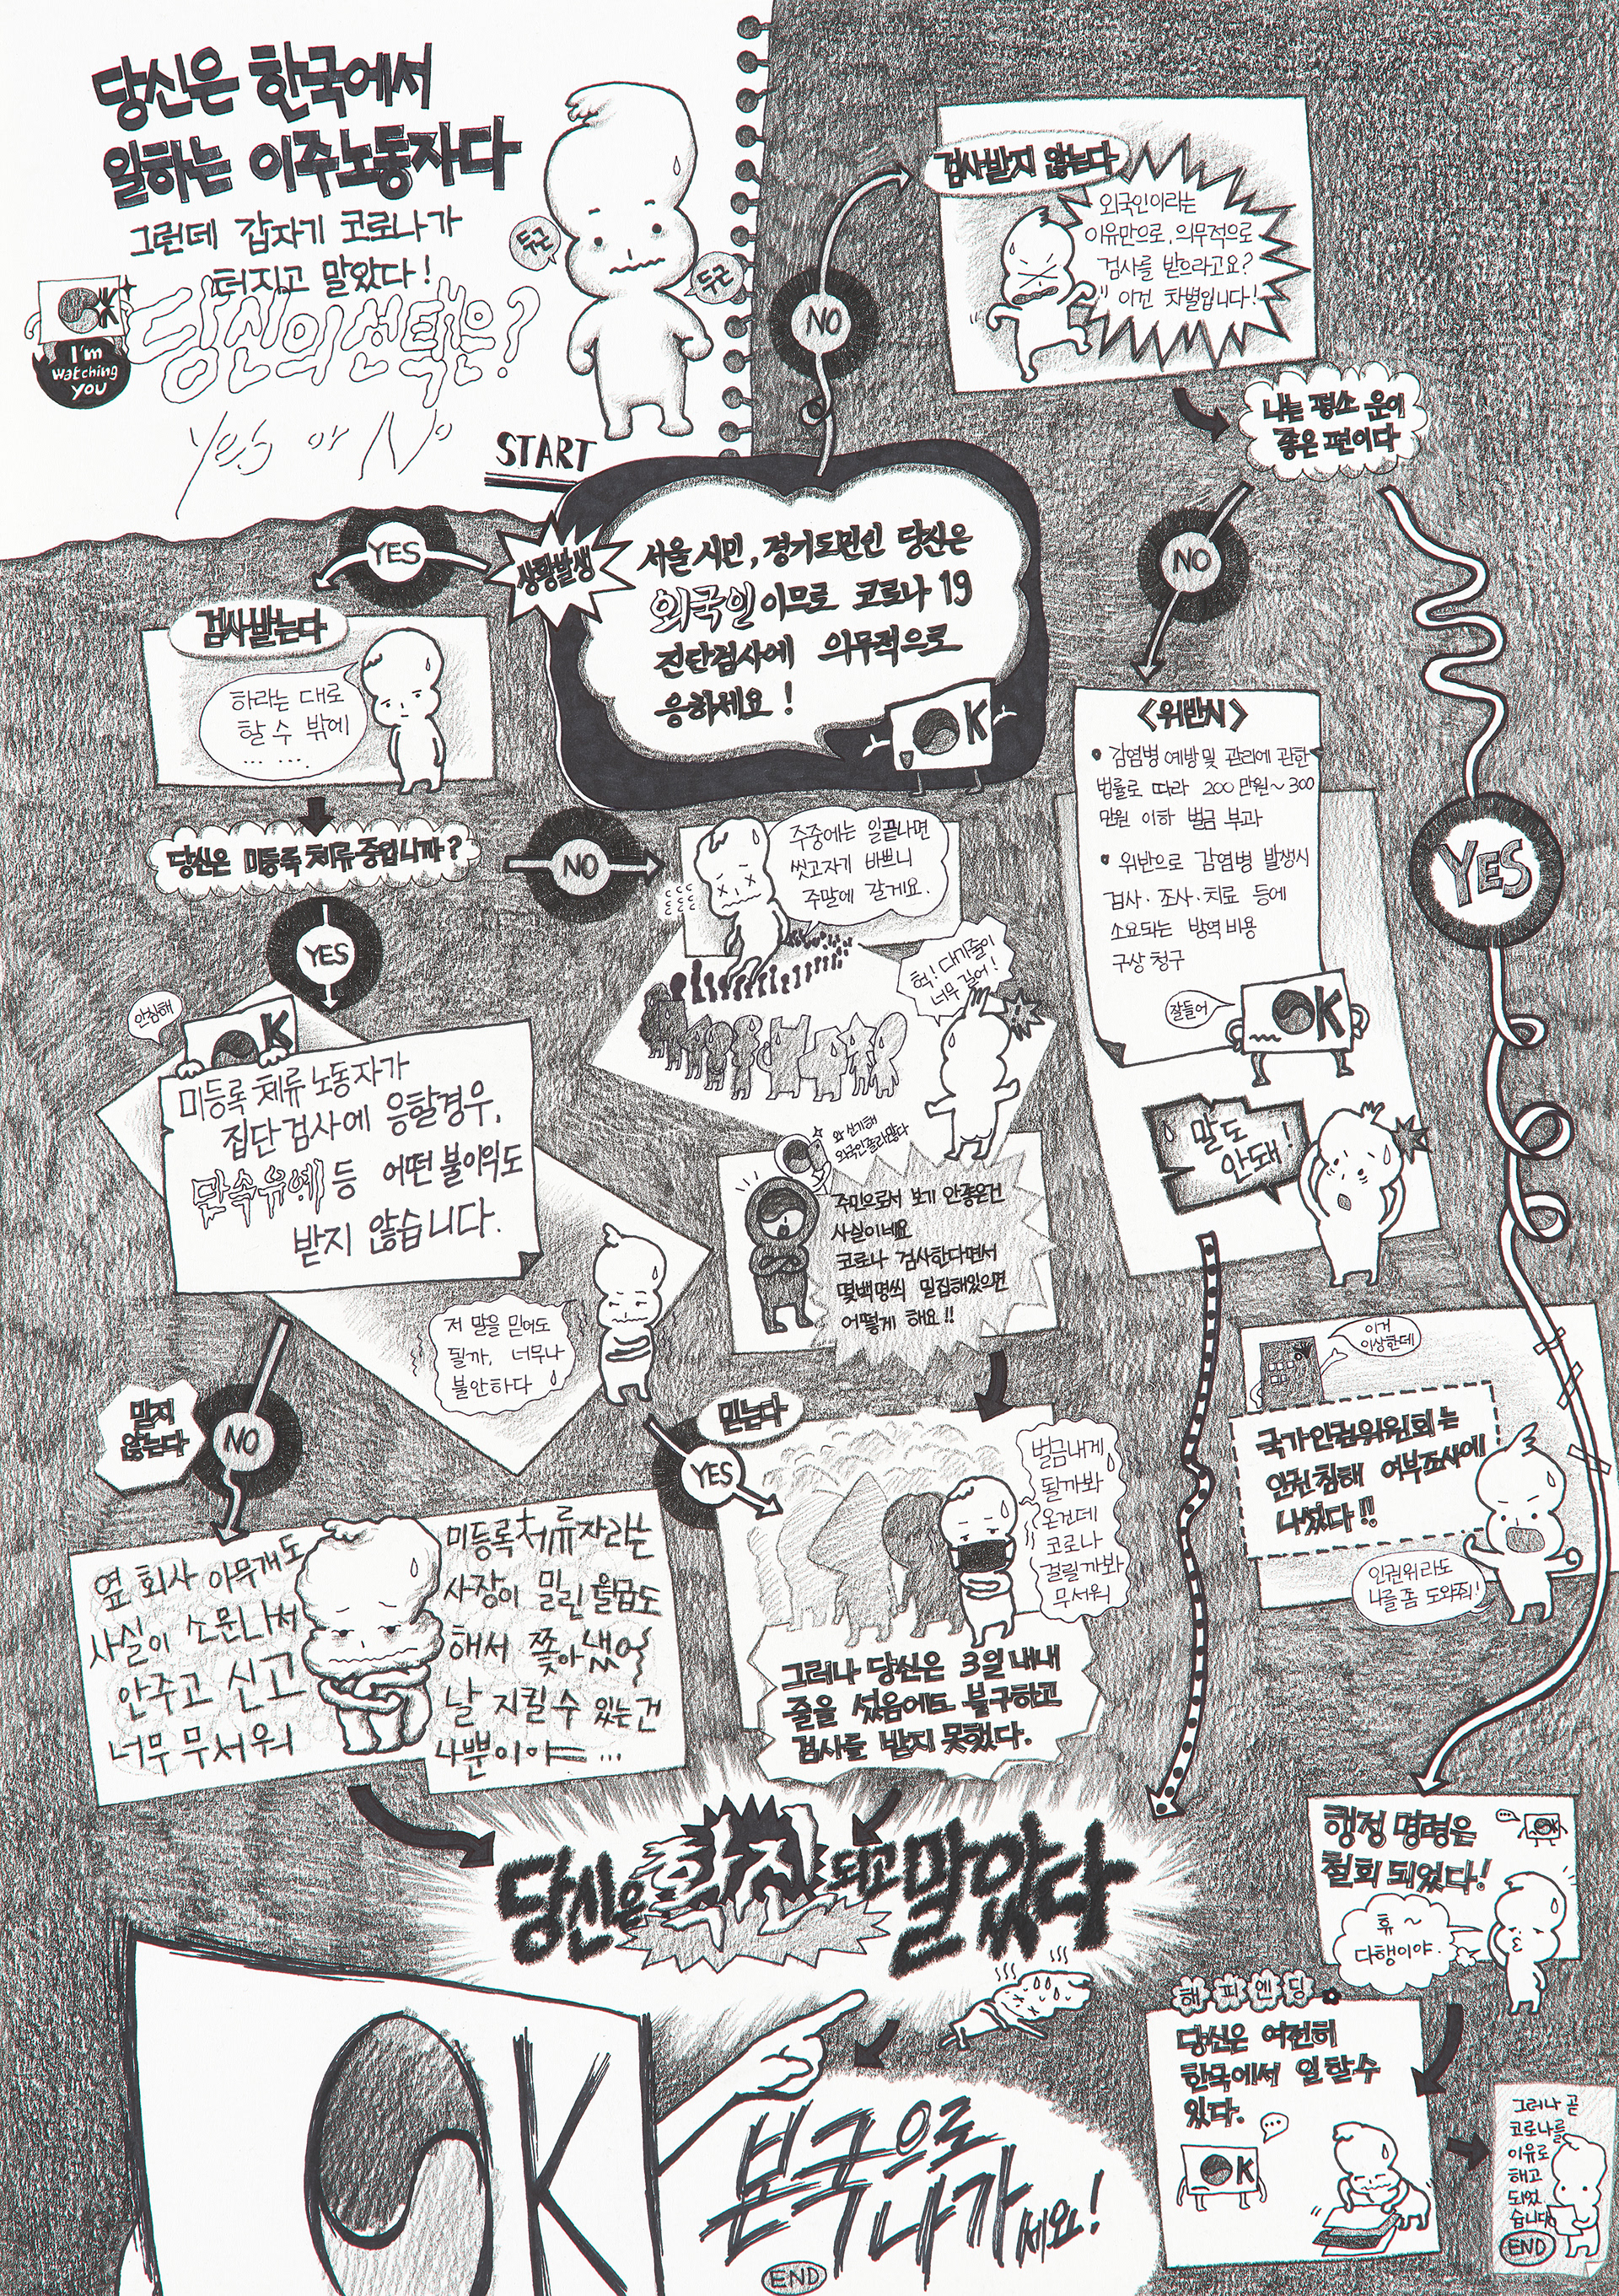 당신은 한국에서
일하는 이주노동자다
그런데 갑자기 코로나가
터지고 말았다!
당신의 선택은?
Yes or No
OK
I'm
watching
YOU
두근
두근
START
상황발생
서울시민, 경기도민인 당신은
외국인이므로 코로나19
진단검사에 의무적으로
응하세요!
OK
NO
검사받지 않는다
외국인이라는
이유만으로, 의무적으로
검사를 받으라고요?
이건 차별입니다!
나는 평소 운이
좋은 편이다
NO
<위반시>
• 감염병 예방 및 관리에 관한
법률로 따라 200만원~300
만원 이하 벌금 부과
• 위반으로 감염병 발생시
검사·조사·치료 등에
소요되는 방역비용
구상 청구
잘들어
OK
말도
안돼!
YES
이거
이상한데
국가인권위원회는
인권침해 여부조사에
나섰다!!
인권위라도
나를 좀 도와줘!
행정 명령은
철회 되었다!
OK
휴~
다행이야.
해피엔딩
당신은 여전히
한국에서 일할수
있다.
OK
그러나 곧
코로나를
이유로
해고
되었
습니다
END
YES
검사받는다
하라는 대로
할 수 밖에
... ...
당신은 미등록 체류중입니까?
NO
주중에는 일끝나면
씻고자기 바쁘니
주말에 갈게요.
헉! 대기줄이
너무 길어!
와 신기해
외국인졸라많다
주민으로서 보기 안좋은건
사실이네요
코로나 검사한다면서
몇백명씩 밀집해있으면
어떻게 해요!!
YES
안심해
OK
미등록 체류 노동자가
집단검사에 응할경우,
단속유예 등 어떤 불이익도
받지 않습니다.
저 말을 믿어도
될까, 너무나
불안하다
믿지
않는다
NO
옆 회사 아무개도 미등록체류자라는
사실이 소문나서 사장이 밀린 월급도
안주고 신고해서 쫓아냈어
너무 무서워 날 지킬수 있는건
나뿐이야...
믿는다
YES
벌금내게
될까봐
온건데
코로나
걸릴까봐
무서워
그러나 당신은 3일 내내
줄을 섰음에도 불구하고
검사를 받지 못했다.
당신은 확진되고 말았다
OK
본국으로
나가세요!
END